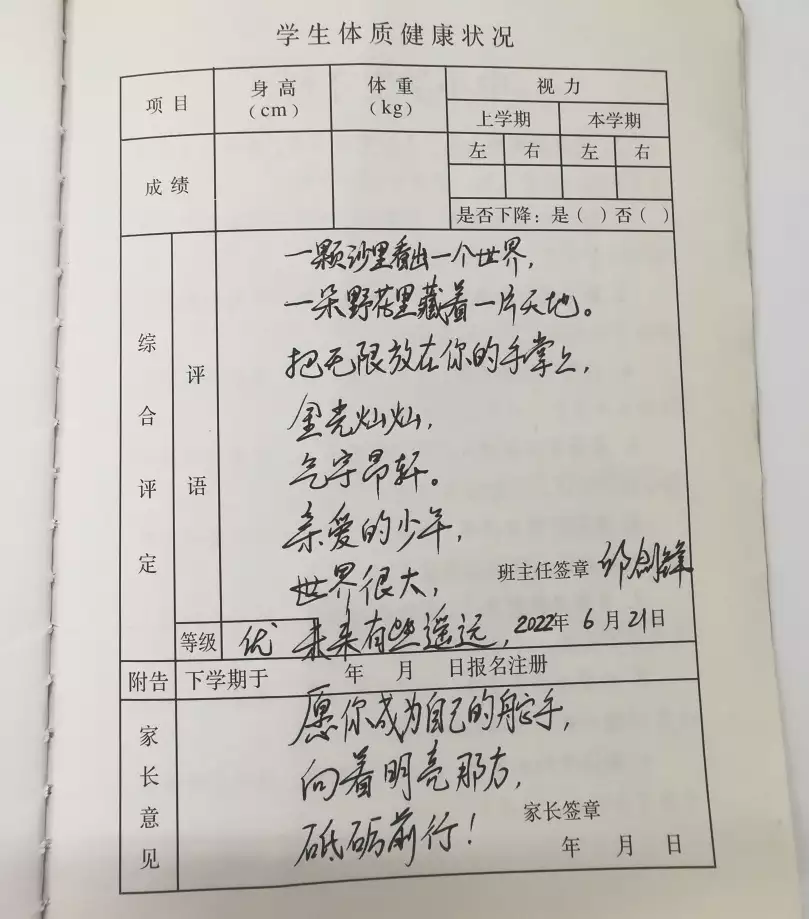 学生体质健康状况
项目 身高(cm) 体重(kg) 视力
上学期 本学期
左 右 左 右
成绩
是否下降：是（ ）否（ ）
综合评定
评语
一颗沙里看出一个世界，
一朵野花里藏着一片天地。
把无限放在你的手掌上，
金光灿灿，
气宇昂轩。
亲爱的少年，
世界很大，
班主任签章 邱剑锋
等级 优 未来有些遥远，2022年 6 月 21日
附告 下学期于 年 月 日报名注册
家长意见
愿你成为自己的舵手，
向着明亮那方，
砥砺前行！
家长签章
年 月 日